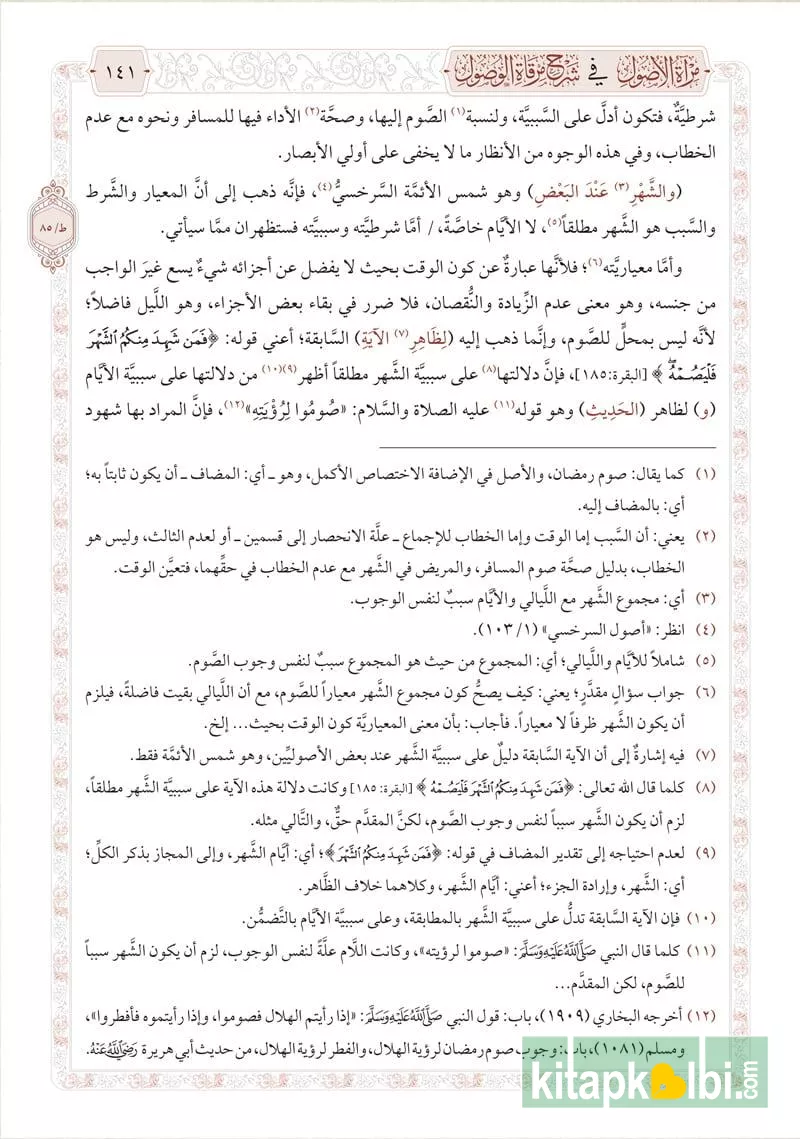 مرآة الأصول في شرح مرقاة الوصول
١٤١
شرطيَّةٌ، فتكون أدلَّ على السَّببيَّة، ولنسبة(١) الصَّوم إليها، وصحَّة(٢) الأداء فيها للمسافر ونحوه مع عدم
الخطاب، وفي هذه الوجوه من الأنظار ما لا يخفى على أولي الأبصار.
(والشَّهْرِ(٣) عَنْدَ البَعْضِ) وهو شمس الأئمَّة السَّرخسيُّ(٤)، فإنَّه ذهب إلى أنَّ المعيار والشَّرط
والسَّبب هو الشَّهر مطلقاً(٥)، لا الأيَّام خاصَّةً، / أمَّا شرطيَّته وسببيَّته فستظهران ممَّا سيأتي.
ط/ ٨٥
وأمَّا معياريَّته(٦)؛ فلأنَّها عبارةٌ عن كون الوقت بحيث لا يفضل عن أجزائه شيءٌ يسع غيرَ الواجب
من جنسه، وهو معنى عدم الزِّيادة والنُّقصان، فلا ضرر في بقاء بعض الأجزاء، وهو اللَّيل فاضلاً؛
لأنَّه ليس بمحلٍّ للصَّوم، وإنَّما ذهب إليه (لِظَاهِرِ(٧) الآيَةِ) السَّابقة؛ أعني قوله: ﴿فَمَن شَهِدَ مِنكُمُ ٱلشَّهْرَ
فَلْيَصُمْهُ ۖ﴾ [البقرة: ١٨٥]، فإنَّ دلالتها(٨) على سببيَّة الشَّهر مطلقاً أظهر(٩)(١٠) من دلالتها على سببيَّة الأيَّام
(و) لظاهر (الحَدِيثِ) وهو قوله(١١) عليه الصلاة والسَّلام: «صُومُوا لِرُؤْيَتِهِ»(١٢)، فإنَّ المراد بها شهود
(١) كما يقال: صوم رمضان، والأصل في الإضافة الاختصاص الأكمل، وهو ـ أي: المضاف ـ أن يكون ثابتاً به؛
أي: بالمضاف إليه.
(٢) يعني: أن السَّبب إما الوقت وإما الخطاب للإجماع ـ علَّة الانحصار إلى قسمين ـ أو لعدم الثالث، وليس هو
الخطاب، بدليل صحَّة صوم المسافر، والمريض في الشَّهر مع عدم الخطاب في حقِّهما، فتعيَّن الوقت.
(٣) أي: مجموع الشَّهر مع اللَّيالي والأيَّام سببٌ لنفس الوجوب.
(٤) انظر: «أصول السرخسي» (١/ ١٠٣).
(٥) شاملاً للأيَّام واللَّيالي؛ أي: المجموع من حيث هو المجموع سببٌ لنفس وجوب الصَّوم.
(٦) جواب سؤالٍ مقدَّرٍ؛ يعني: كيف يصحُّ كون مجموع الشَّهر معياراً للصَّوم، مع أن اللَّيالي بقيت فاضلةً، فيلزم
أن يكون الشَّهر ظرفاً لا معياراً. فأجاب: بأن معنى المعياريَّة كون الوقت بحيث... إلخ.
(٧) فيه إشارةٌ إلى أن الآية السَّابقة دليلٌ على سببيَّة الشَّهر عند بعض الأصوليِّين، وهو شمس الأئمَّة فقط.
(٨) كلما قال الله تعالى: ﴿فَمَن شَهِدَ مِنكُمُ ٱلشَّهْرَ فَلْيَصُمْهُ﴾ [البقرة: ١٨٥] وكانت دلالة هذه الآية على سببيَّة الشَّهر مطلقاً،
لزم أن يكون الشَّهر سبباً لنفس وجوب الصَّوم، لكنَّ المقدَّم حقٌّ، والتَّالي مثله.
(٩) لعدم احتياجه إلى تقدير المضاف في قوله: ﴿فَمَن شَهِدَ مِنكُمُ ٱلشَّهْرَ﴾؛ أي: أيَّام الشَّهر، وإلى المجاز بذكر الكلِّ؛
أي: الشَّهر، وإرادة الجزء؛ أعني: أيَّام الشَّهر، وكلاهما خلاف الظَّاهر.
(١٠) فإن الآية السَّابقة تدلُّ على سببيَّة الشَّهر بالمطابقة، وعلى سببيَّة الأيَّام بالتَّضمُّن.
(١١) كلما قال النبي ﷺ: «صوموا لرؤيته»، وكانت اللَّام علَّةً لنفس الوجوب، لزم أن يكون الشَّهر سبباً
للصَّوم، لكن المقدَّم...
(١٢) أخرجه البخاري (١٩٠٩)، باب: قول النبي ﷺ: «إذا رأيتم الهلال فصوموا، وإذا رأيتموه فأفطروا»،
ومسلم (١٠٨١)، باب: وجوب صوم رمضان لرؤية الهلال، والفطر لرؤية الهلال، من حديث أبي هريرة رَضِيَ اللَّهُ عَنْهُ.
kitapkalbi.com